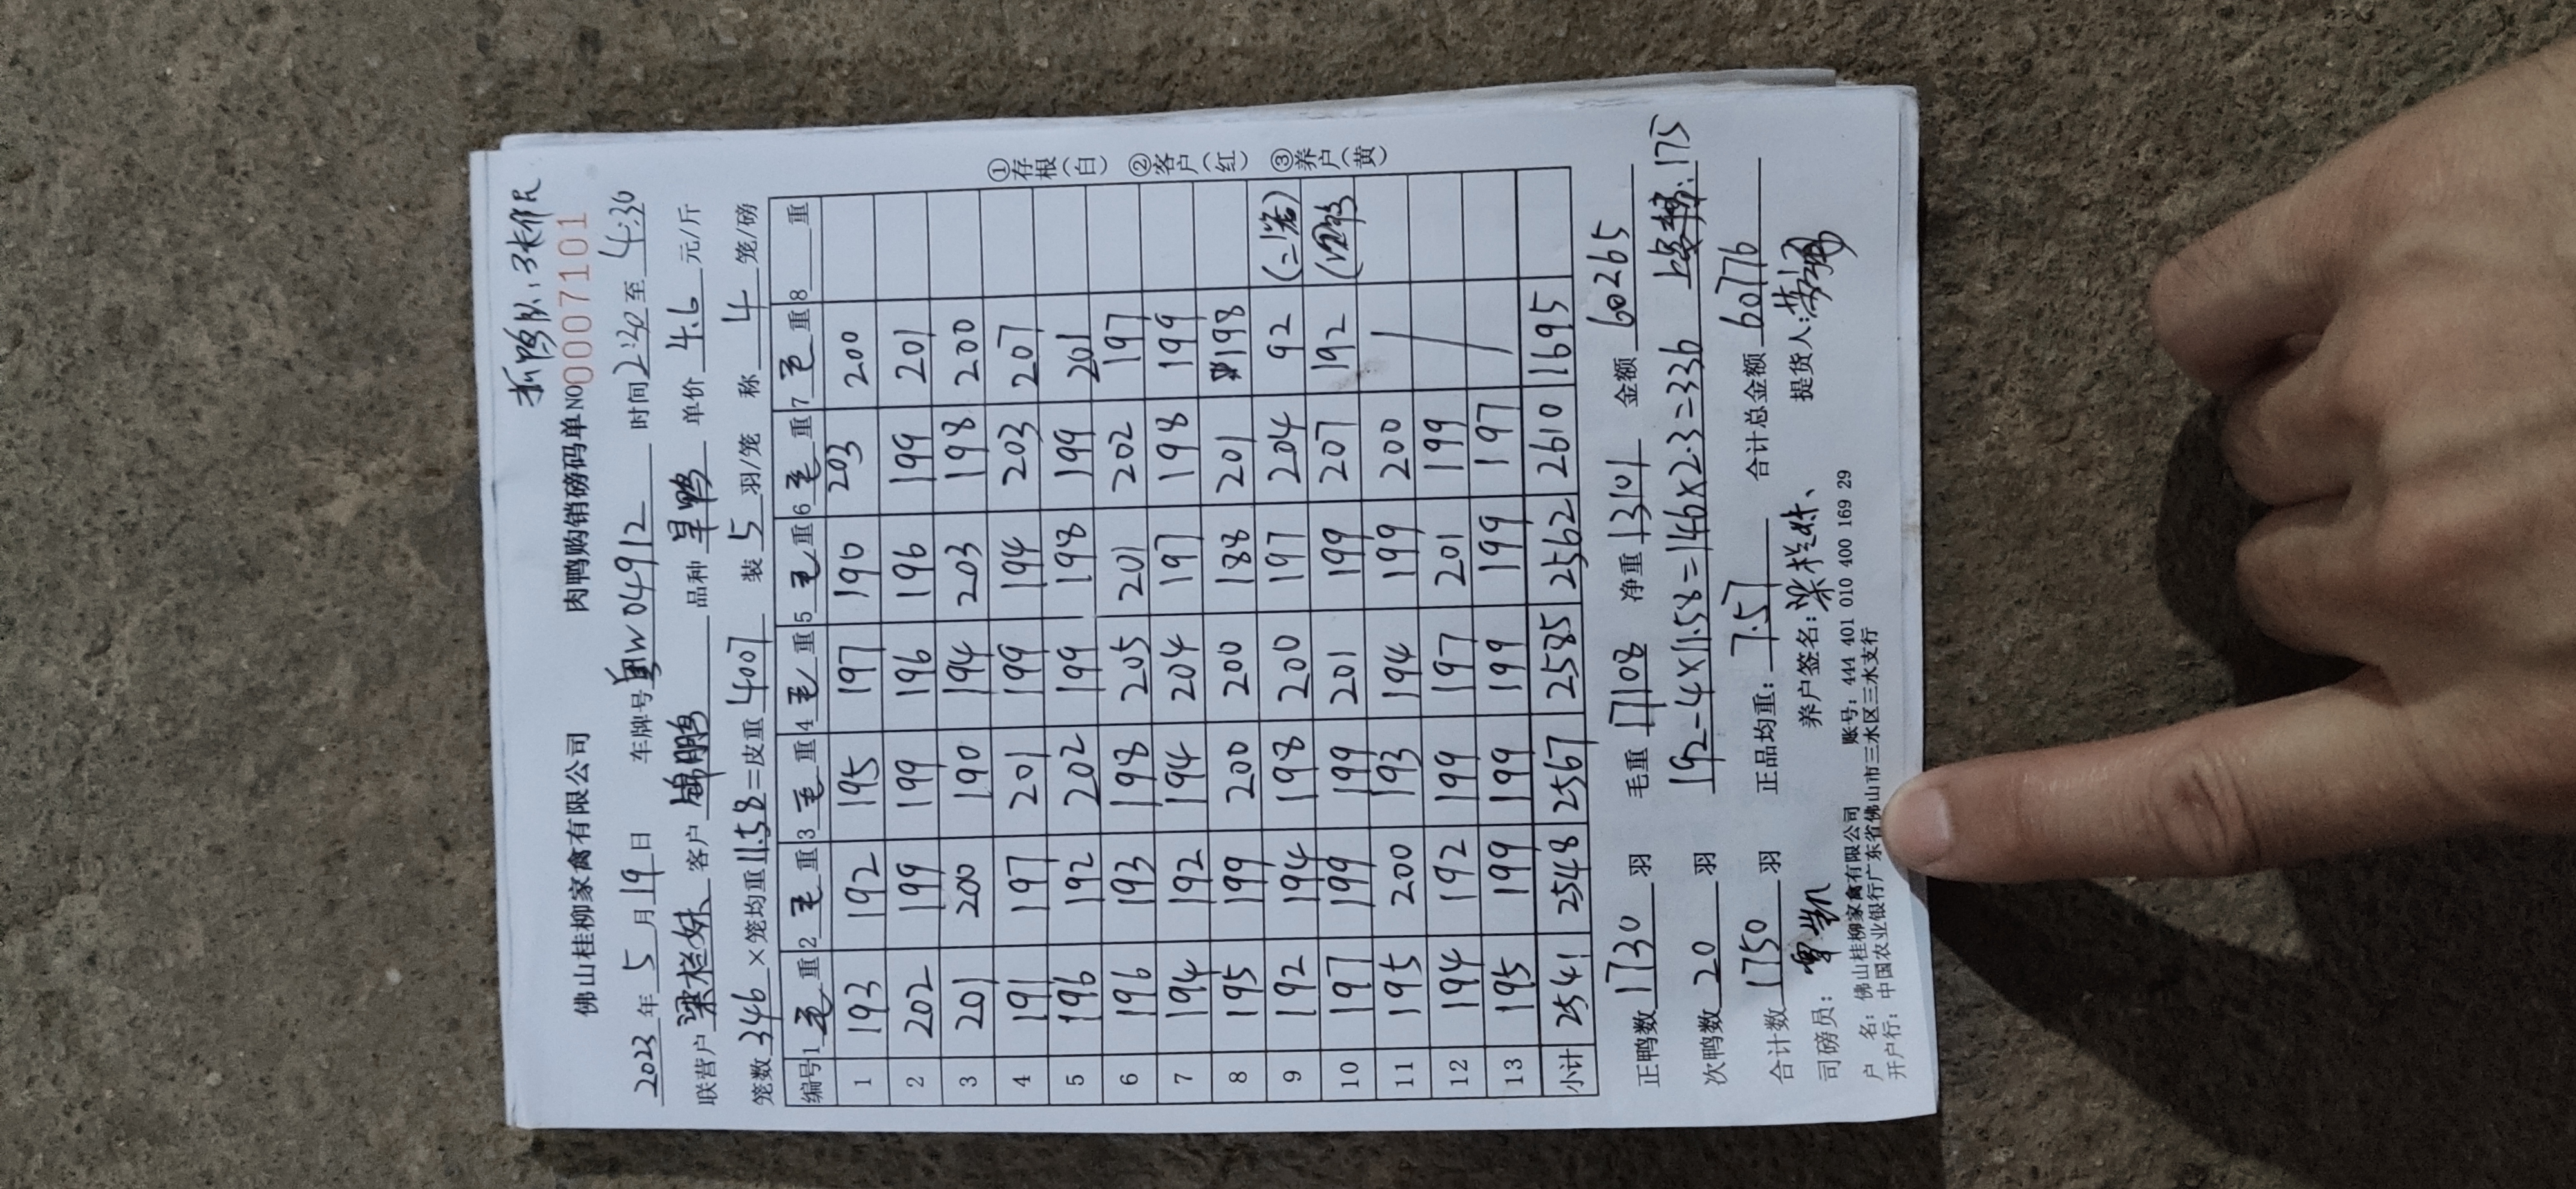 抓鸭队:张伟尺
佛山桂柳家禽有限公司 肉鸭购销磅码单 NO 00007101
2023年5月19日 车牌号 粤W04912 时间 2:30至4:30
联营户 梁栏妹 客户 锦鹏 品种 旱鸭 单价 4.6 元/斤
笼数 346 ×笼均重 11.58 =皮重 4007 装 5 羽/笼 称 4 笼/磅
编号 1毛重 2毛重 3毛重 4毛重 5毛重 6毛重 7毛重 8 重
1 193 192 195 197 190 203 200
2 202 199 199 196 196 199 201
3 201 200 190 194 203 198 200
4 191 197 201 199 194 203 207
5 196 192 202 199 198 199 201
6 196 193 198 205 201 202 197
7 194 192 194 204 197 198 199
8 195 199 200 200 188 201 198
9 192 194 198 200 197 204 92 (二笼)
10 197 199 199 201 199 207 192 (次鸭)
11 195 200 193 194 199 200 /
12 194 192 199 197 201 199 /
13 195 199 199 199 199 197 /
小计 2541 2548 2567 2585 2562 2610 1695
正鸭数 1730 羽 毛重 17108 净重 13101 金额 60265
次鸭数 20 羽 192-4×11.58=146×2.3=336 :175
合计数 1750 羽 正品均重: 7.57 合计总金额 60776
司磅员: 养户签名: 梁栏妹 提货人:
户 名: 佛山桂柳家禽有限公司 账号: 444 401 010 400 169 29
开户行: 中国农业银行广东省佛山市三水区三水支行
①存根(白) ②客户(红) ③养户(黄)